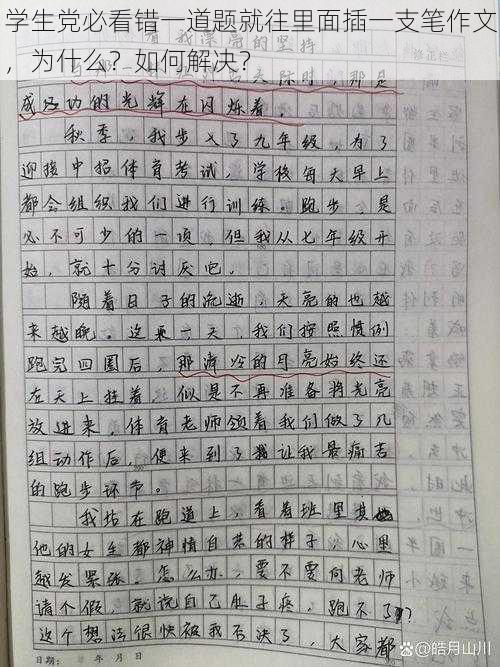 学生党必看错一道题就往里面插一支笔作文
，为什么？如何解决？
看我漂亮的坚持
天际时，那是
成功的光辉在闪烁着。
秋季，我步入了九年级，为了
迎接中招体育考试，学校每天早上
都会组织我们进行训练。跑步，是
必不可少的一项，但我从七年级开
始，就十分讨厌它。
随着日子的流逝，天亮的也越
来越晚。这一天，我们按照惯例
跑完四圈后，那清冷的月亮始终还
在天上挂着，似是不再准备将光亮
放进来，体育老师领着我们做了几
组动作后，便来到了我最痛苦
的跑步环节。
我站在跑道上，看着班里其
他的女生都神情自若的样子，心里
越发紧张。怎么办，要不要向老师
请个假，就说自己肚子疼，跑不了？
这个想法很快被我否决了，大家都
日期： 年 月 日
修正栏
百家号@皓月山川